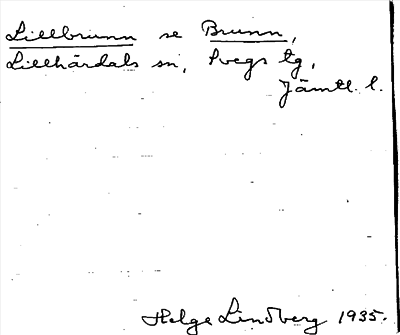 Lillbrunn se Brunn,
Lillhärdals sn, Svegs tg,
Jämtl. l.
Helge Lindberg 1935.